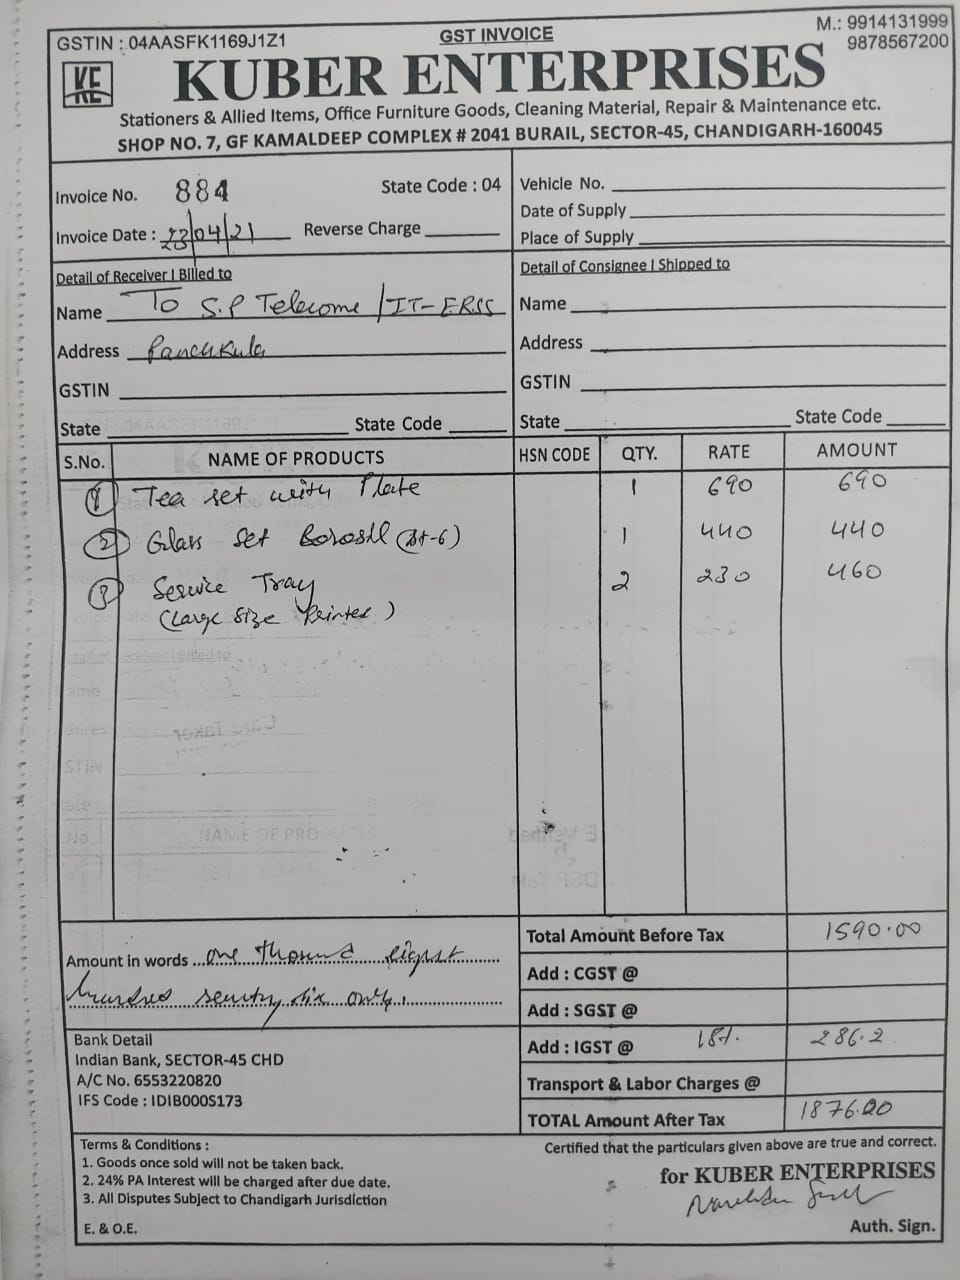 GSTIN : 04AASFK1169J1Z1
GST INVOICE
M.: 9914131999
9878567200
KE
KUBER ENTERPRISES
Stationers & Allied Items, Office Furniture Goods, Cleaning Material, Repair & Maintenance etc.
SHOP NO. 7, GF KAMALDEEP COMPLEX # 2041 BURAIL, SECTOR-45, CHANDIGARH-160045
Invoice No. 884 State Code : 04
Invoice Date : 23/04/21 Reverse Charge
Vehicle No.
Date of Supply
Place of Supply
Detail of Receiver | Billed to
Name To S.P Telecome/IT-ERSS
Address Panchkula
GSTIN
State State Code
Detail of Consignee | Shipped to
Name
Address
GSTIN
State State Code
S.No. NAME OF PRODUCTS HSN CODE QTY. RATE AMOUNT
1 Tea set with Plate 1 690 690
2 Glass set Borosil 1 440 440
3 Service Tray 2 230 460
(Large Size Printed)
Total Amount Before Tax 1590.00
Amount in words one thousand eight
hundred seventy six only
Add : CGST @
Add : SGST @
Add : IGST @ 18%. 286.2
Transport & Labor Charges @
TOTAL Amount After Tax 1876.20
Bank Detail
Indian Bank, SECTOR-45 CHD
A/C No. 6553220820
IFS Code : IDIB000S173
Terms & Conditions :
1. Goods once sold will not be taken back.
2. 24% PA Interest will be charged after due date.
3. All Disputes Subject to Chandigarh Jurisdiction
E. & O.E.
Certified that the particulars given above are true and correct.
for KUBER ENTERPRISES
Auth. Sign.